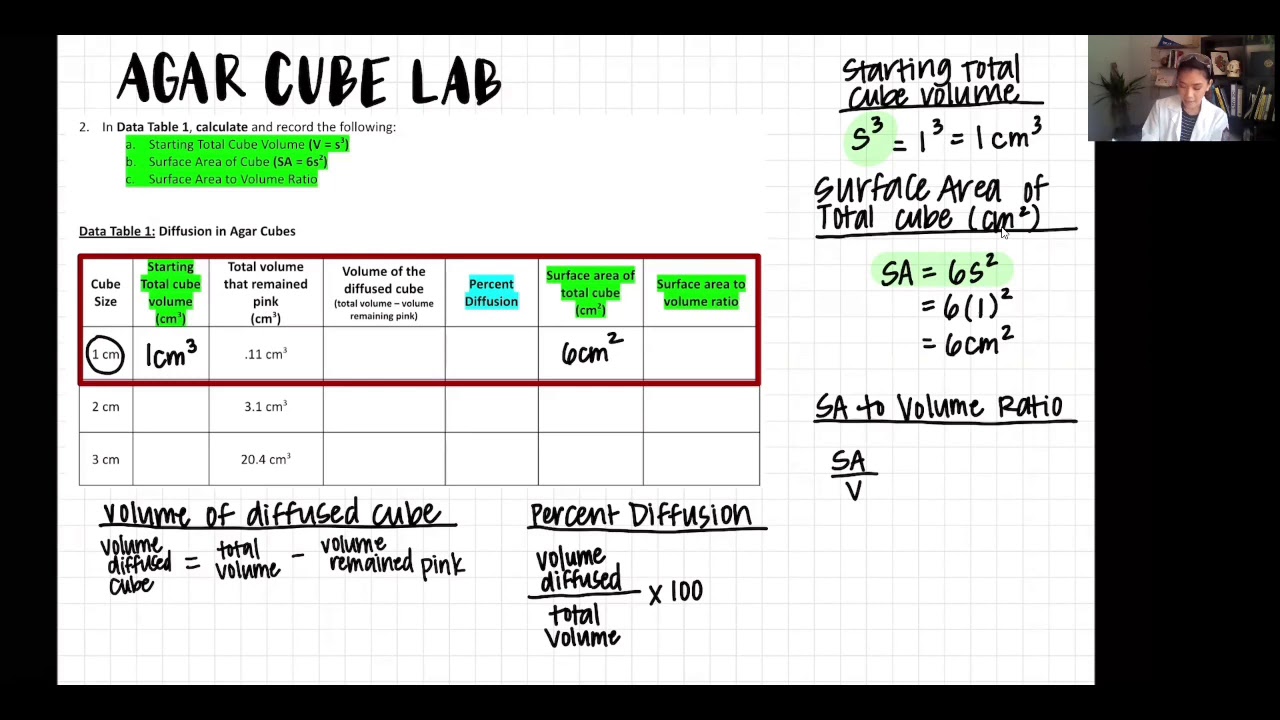 AGAR CUBE LAB
2. In Data Table 1, calculate and record the following:
a. Starting Total Cube Volume (V = s³)
b. Surface Area of Cube (SA = 6s²)
c. Surface Area to Volume Ratio
Data Table 1: Diffusion in Agar Cubes
Cube Size
Starting Total cube volume (cm³)
Total volume that remained pink (cm³)
Volume of the diffused cube (total volume – volume remaining pink)
Percent Diffusion
Surface area of total cube (cm²)
Surface area to volume ratio
1 cm 1cm³ .11 cm³ 6cm²
2 cm 3.1 cm³
3 cm 20.4 cm³
Volume of diffused cube
volume diffused cube = total volume – volume remained pink
Percent Diffusion
volume diffused
total volume
x 100
Starting Total
cube volume
S³ = 1³ = 1cm³
Surface Area of
Total cube (cm²)
SA = 6s²
= 6(1)²
= 6cm²
SA to Volume Ratio
SA
V